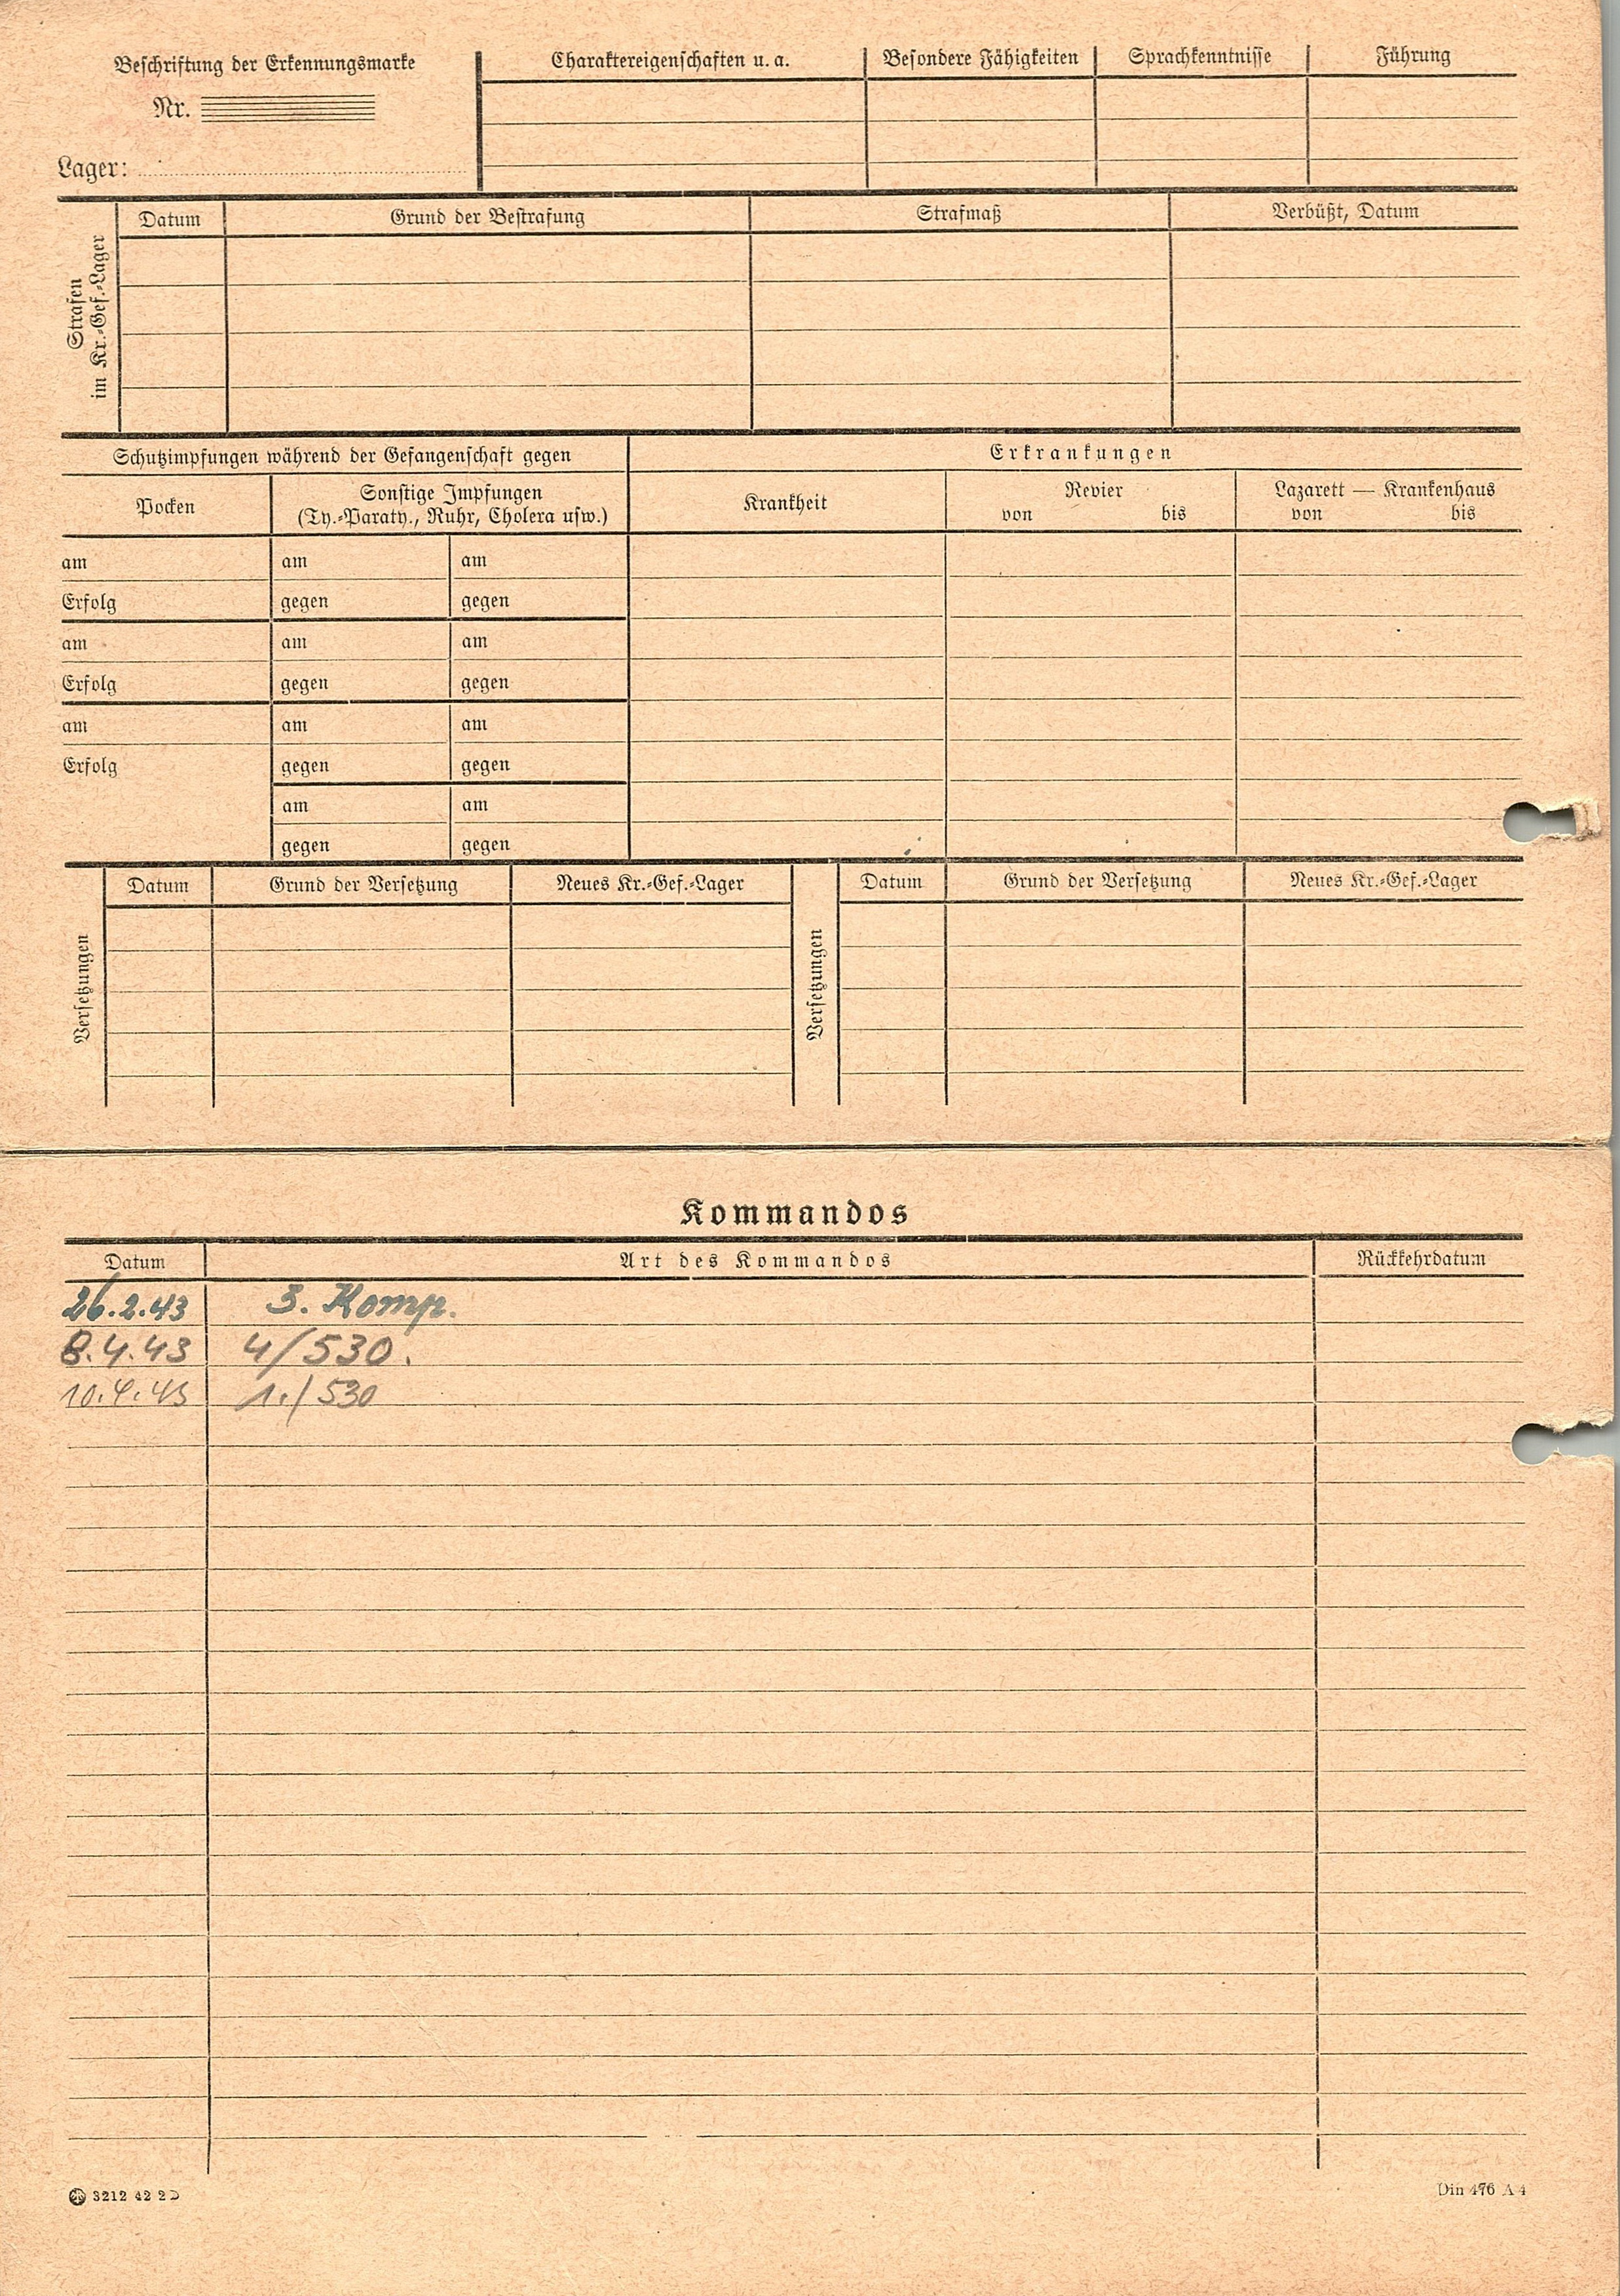 Beschriftung der Erkennungsmarke
Nr.
Lager:
Charaktereigenschaften u. a.
Besondere Fähigkeiten
Sprachkenntnisse
Führung
Strafen
im Kr.-Gef.-Lager
Datum
Grund der Bestrafung
Strafmaß
Verbüßt, Datum
Schutzimpfungen während der Gefangenschaft gegen
Erkrankungen
Pocken
Sonstige Impfungen
(Ty.-Paraty., Ruhr, Cholera usw.)
Krankheit
Revier
von bis
Lazarett — Krankenhaus
von bis
am am am
Erfolg gegen gegen
am am am
Erfolg gegen gegen
am am am
Erfolg gegen gegen
am am
gegen gegen
Versetzungen
Datum Grund der Versetzung Neues Kr.-Gef.-Lager
Versetzungen
Datum Grund der Versetzung Neues Kr.-Gef.-Lager
Kommandos
Datum Art des Kommandos Rückkehrdatum
26.2.43 3. Komp.
8.4.43 4/530.
10.4.43 1./530
3212 42 2 D
Din 476 A 4